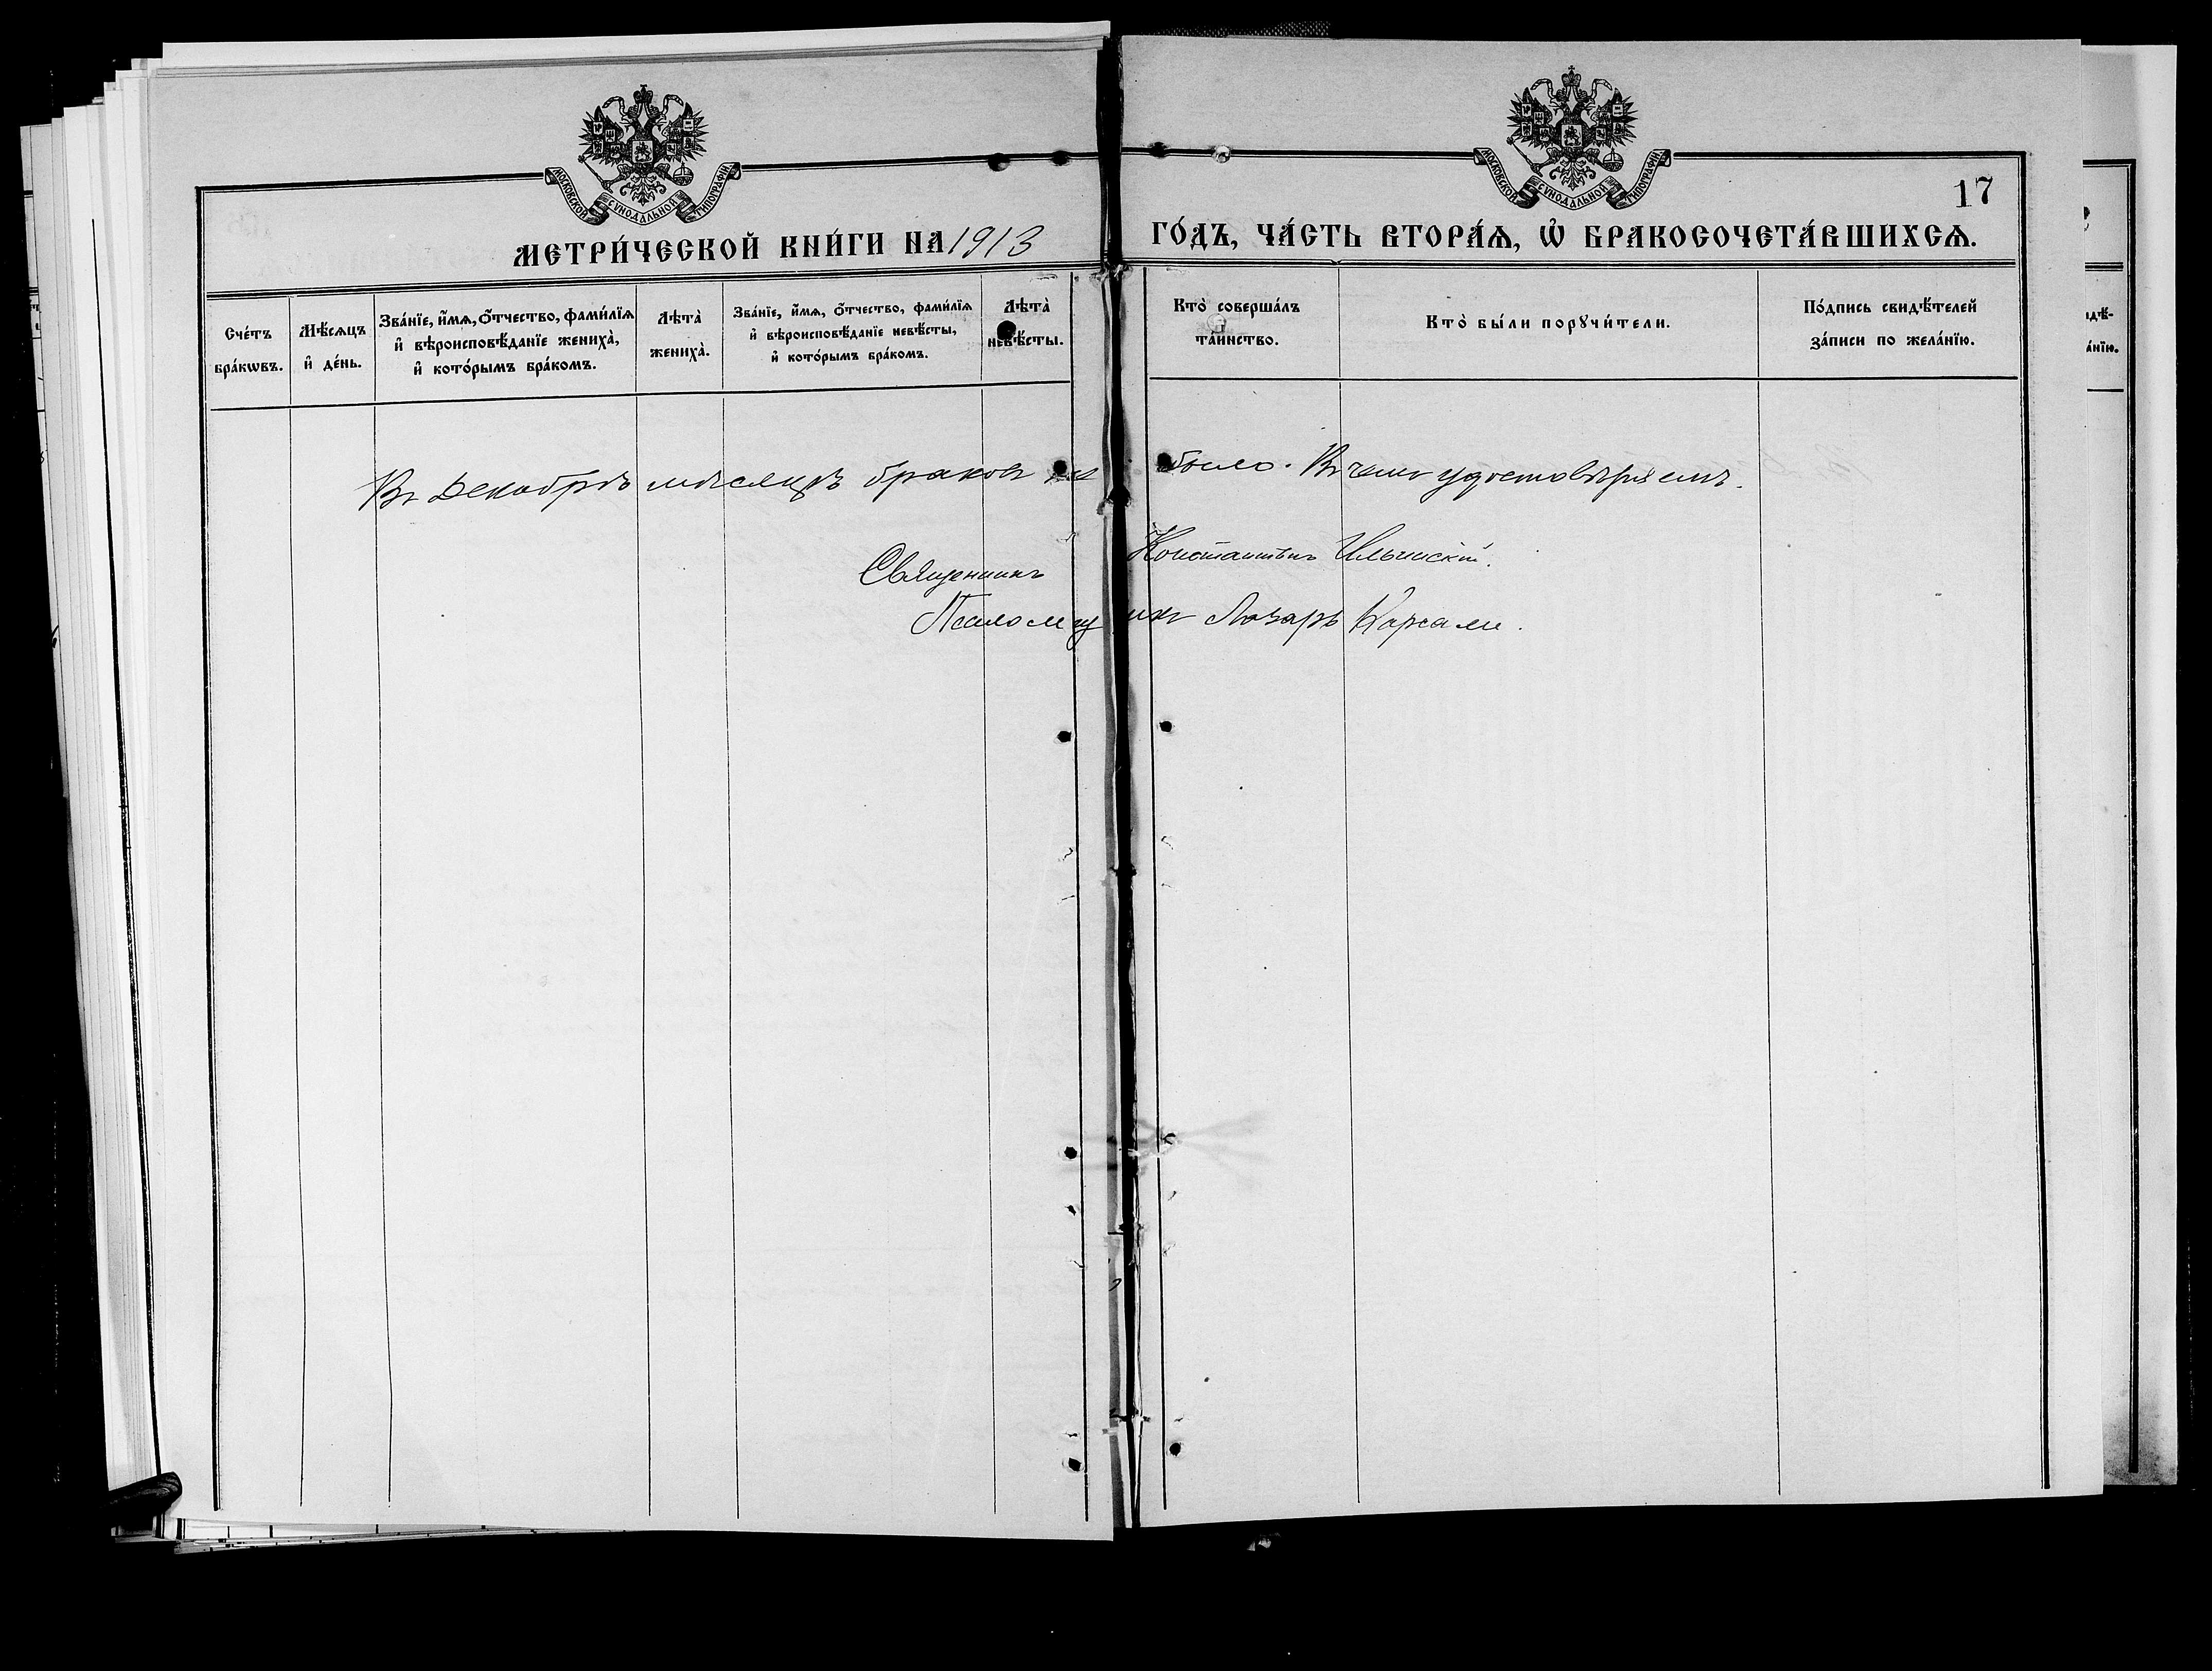 МОСКОВСКОЙ СУНОДАЛЬНОЙ ТИПОГРАФІИ
МОСКОВСКОЙ СУНОДАЛЬНОЙ ТИПОГРАФІИ
17
МЕТРИ́ЧЕСКОЙ КНИ́ГИ НА 1913 ГО́ДЪ, ЧА́СТЬ ВТОРА́Ѧ, Ѽ БРАКОСОЧЕТА́ВШИХСѦ.
Сче́тъ
бра́кѡвъ.
Мѣ́сѧцъ
и҆ де́нь.
Зва́нїе, и҆́мѧ, ѻ҆́тчество, фами́лїѧ
и҆ вѣроисповѣ́данїе жениха̀,
и҆ кото́рымъ бра́комъ.
Лѣта̀
жениха̀.
Зва́нїе, и҆́мѧ, ѻ҆́тчество, фами́лїѧ
и҆ вѣроисповѣ́данїе невѣ́сты,
и҆ кото́рымъ бра́комъ.
Лѣта̀
невѣ́сты.
Кто̀ соверша́лъ
та́инство.
Кто̀ бы́ли порꙋчи́тели.
По́дпись свидѣ́телей
за́писи по жела́нїю.
Въ Декабрѣ мѣсяцѣ браковъ не было. Въ чемъ удостовѣряемъ.
Священникъ Константинъ Ильинскій.
Псаломщикъ Лазарь Карсами.